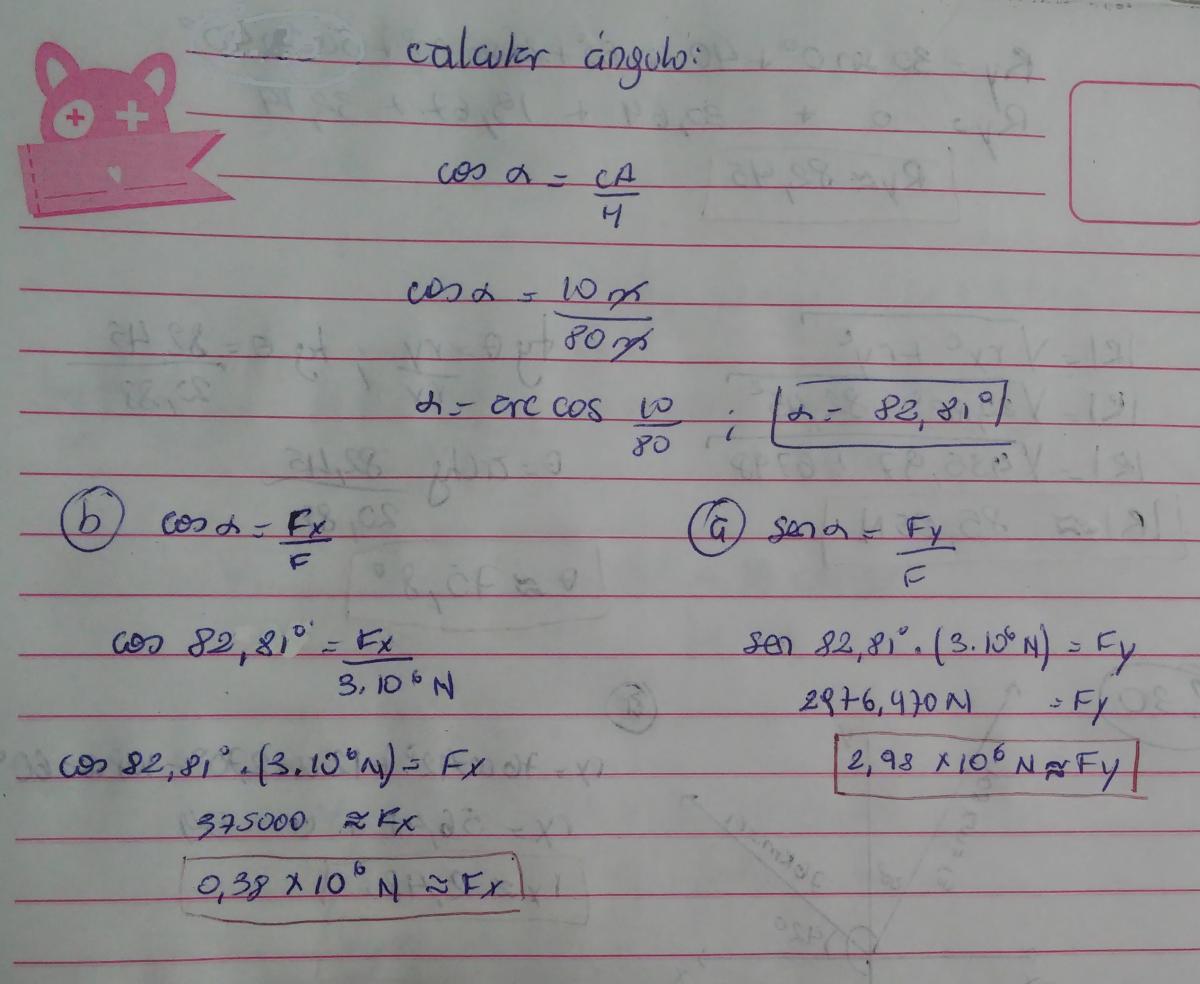 calcular ángulo:
cos α = CA/H
cos α = 10 m/80 m
α = arc cos 10/80 ; α = 82,81°
(b) cos α = Fx/F
cos 82,81° = Fx/3.10⁶ N
cos 82,81° . (3.10⁶ N) = Fx
375000 ≈ Fx
0,38 × 10⁶ N ≈ Fx
(a) sen α = Fy/F
sen 82,81° . (3.10⁶ N) = Fy
2976,470 N = Fy
2,98 × 10⁶ N ≈ Fy